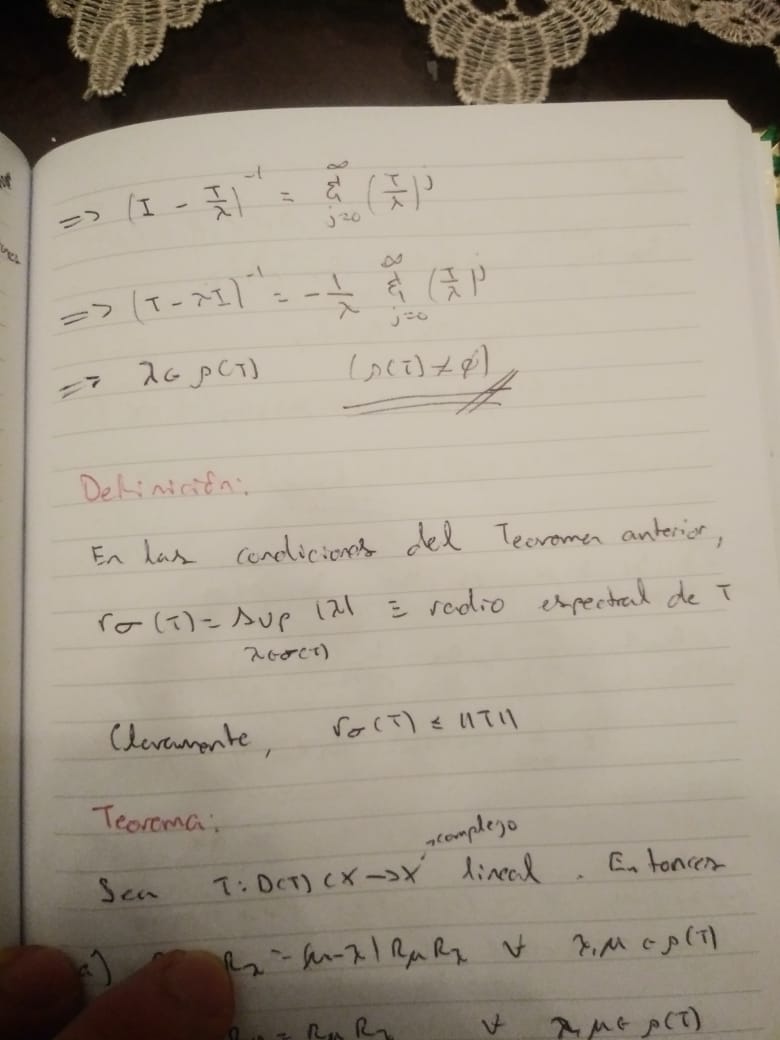 => (I - T/λ)^-1 = Σ_{j=0}^∞ (T/λ)^j
=> (T - λI)^-1 = - 1/λ Σ_{j=0}^∞ (T/λ)^j
=> λ ∈ ρ(T) (ρ(T) ≠ ∅)
Definición:
En las condiciones del Teorema anterior,
rσ(T) = sup |λ| ≡ radio espectral de T
λ∈σ(T)
Claramente, rσ(T) ≤ ||T||
Teorema:
→complejo
Sea T: D(T) ⊂ X → X lineal. Entonces
a) Rλ = (μ-λ) Rμ Rλ ∀ λ, μ ∈ ρ(T)
= Rμ Rλ ∀ λ, μ ∈ ρ(T)